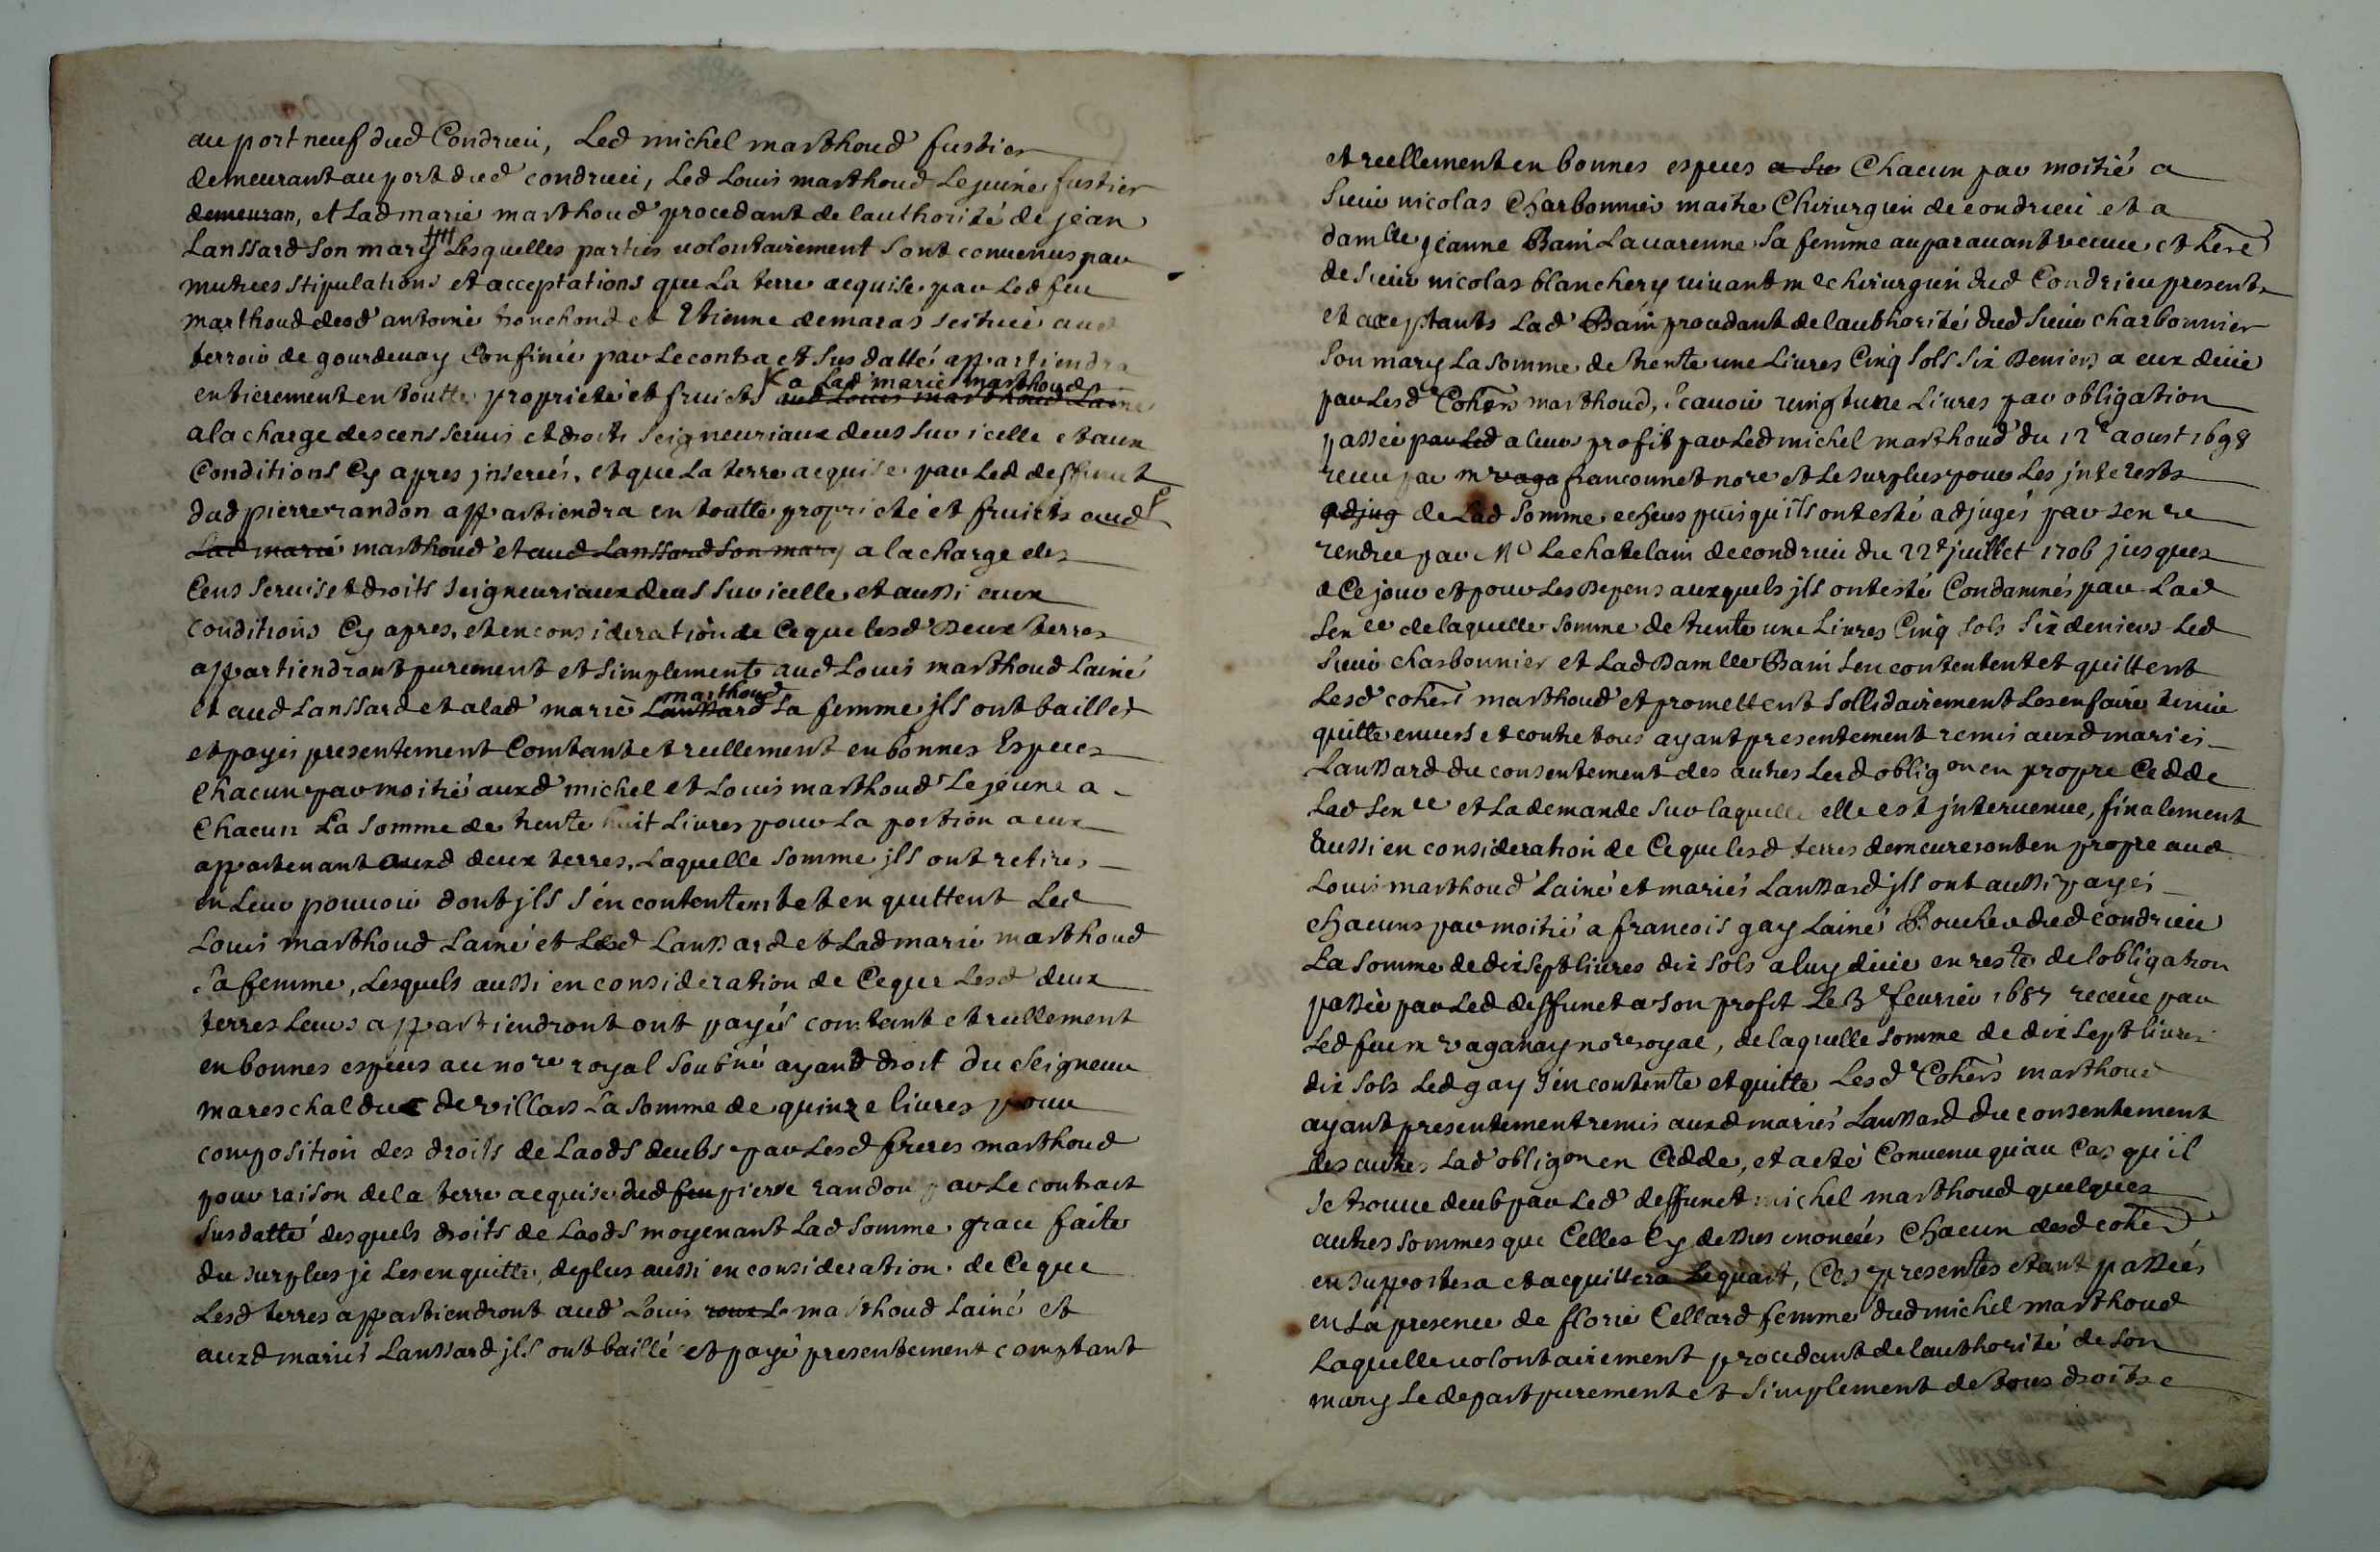 au port neuf dud Condrieu, Led michel marthoud fustier
demeurant au port dud condrieu, Led Louis marthoud Lejeune fustier
demeuran, et Lad marie marthoud procedant de lauthorité de jean
Lanssard son mary Lesquelles parties volontairement sont convenus par
mutues stipulations et acceptations que La terre acquise par Led feu
marthoud desd antoine et Etienne demaras scituée aud
terroir de gourdenay Confinée par Le contract sus datté appartiendra
entierement en toutte proprieté et fruicts aud Louis marthoud Lainé
a Lad marie marthoud
a la charge des cens servis et droits seigneuriaux deus sur icelle et aux
Conditions Cy apres jnserées, et que La terre acquise par Led deffunct
dud pierre randon appartiendra en toutte proprieté et fruicts aud
Lad marie marthoud et aud Lanssard son mary a la charge des
Cens servis et droits seigneuriaux deus sur icelle et aussi aux
conditions Cy apres, et en consideration de Ce que lesd Deux terres
appartiendront purement et simplement aud Louis marthoud Lainé
et aud Lanssard et a lad marie Lanssard sa femme jls ont baillés
marthoud
et payés presentement Comtant et reellement en bonnes Especes
Chacun par moitié auxd michel et Louis marthoud Lejeune a
Chacun La somme de trente huit Livres pour La portion a eux
appartenant auxd deux terres, Laquelle somme jls ont retirés
en Leur pouvoir dont jls s'en contentent et en quittent Led
Louis marthoud Lainé et Lesd Lanssard et Lad marie marthoud
sa femme, Lesquels aussi en consideration de Ce que Lesd deux
terres Leurs appartiendront ont payés comtant et reellement
en bonnes especes au nore royal soubné ayand droit du seigneur
mareschal duc de villars La somme de quinze livres pour
composition des droits de Laods deubs par Lesd freres marthoud
pour raison de la terre acquise dud feu pierre randon par Le contract
susdatté desquels droits de Laods moyenant Lad somme grace faite
du surplus je Les en quitte, deplus aussi en consideration de Ce que
Lesd terres appartiendront aud Louis marthoud Lainé et
auxd mariés Lanssard jls ont baillé et payé presentement comptant
et reellement en bonnes especes Chacun par moitié a
sieur nicolas Charbonnier maitre Chirurgien de condrieu et a
damlle jeanne Bain Lavarenne sa femme auparavant veuve et here
de sieur nicolas blanchery vivant me chirurgien dud Condrieu presents
et acceptants Lad Bain procedant de lauthorité dud sieur charbonnier
son mary La somme de trente une Livres Cinq sols six Deniers a eux deüe
par Lesd Cohers marthoud, scavoir vingt une Livres par obligation
passée par Led a leur profit par Led michel marthoud du 12e aoust 1698
receu par m vaga franconnet nore et Le surplus pour Les jnterests
adjug de Lad somme echeus puis qu'ils ont esté adjugés par sen ce
rendue par Mr Le chatelain de condrieu du 22e juillet 1706 jusques
a Ce jour et pour Les Depens auxquels jls ont esté Condamnés par Lad
sen ce de laquelle somme de trente une Livres Cinq sols six deniers Led
sieur charbonnier et Lad Damlle Bain sen contentent et quittent
Lesd cohers marthoud et promettent sollidairement Les en faire tenir
quitte envers et contre tous ayant presentement remis auxd mariés
Lanssard du consentement des autres Lesd obligon en propre Cedde
Lad sen ce et La demande sur laquelle elle est jntervenue, finalement
aussi en consideration de Ce que lesd terres demeureront en propre aud
Louis marthoud Lainé et mariés Lanssard jls ont aussi payés
chacuns par moitié a francois gay Lainé Boucher dud condrieu
La somme de dix sept livres dix sols a luy deüe en reste de lobligation
passée par Led deffunct a son profit Le 3e fevrier 1687 receue par
Led feu m vaganay nore royal, de laquelle somme de dix sept livres
dix sols Led gay s'en contente et quitte Lesd Cohers marthoud
ayant presentement remis auxd mariés Lanssard du consentement
des autres Lad obligon en Cedde, et a eté Convenu qu'au Cas qu'il
se trouve deub par Led deffunct michel marthoud quelques
autres sommes que Celles Cy dessus enoncées Chacun desd coher
en supportera et acquittera Lequart, Ces presentes etant passées
en La presence de florie Cellard femme dud michel marthoud
Laquelle volontairement procedant de lauthorité de son
mary se depart purement et simplement de tous droits e